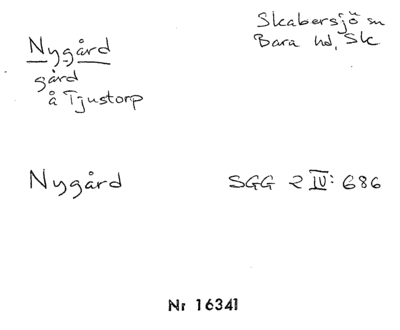 Nygård
Skabersjö sn
Bara hd, Sk
gård
å Tjustorp
Nygård SGG 2 IV: 686
Nr 16341